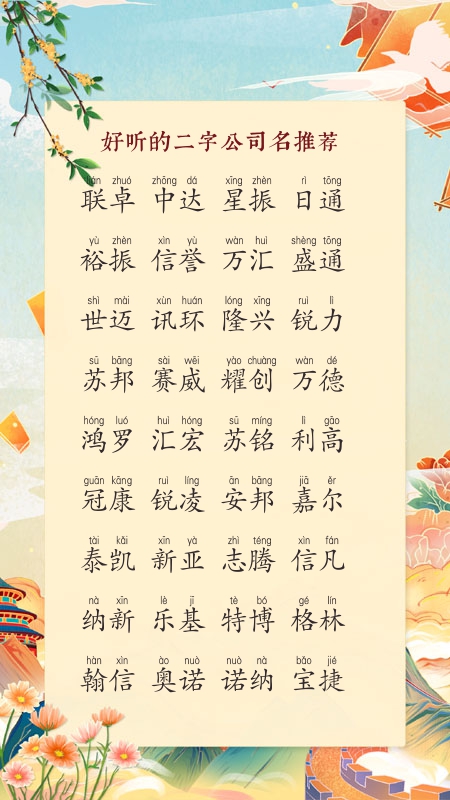 好听的二字公司名推荐
lián zhuó zhōng dá xīng zhèn rì tōng
联卓 中达 星振 日通
yù zhèn xìn yù wàn huì shèng tōng
裕振 信誉 万汇 盛通
shì mài xùn huán lóng xīng ruì lì
世迈 讯环 隆兴 锐力
sū bāng sài wēi yào chuàng wàn dé
苏邦 赛威 耀创 万德
hóng luó huì hóng sū míng lì gāo
鸿罗 汇宏 苏铭 利高
guān kāng ruì líng ān bāng jiā ěr
冠康 锐凌 安邦 嘉尔
tài kǎi xīn yà zhì téng xìn fán
泰凯 新亚 志腾 信凡
nà xīn lè jī tè bó gé lín
纳新 乐基 特博 格林
hàn xìn ào nuò nuò nà bǎo jié
翰信 奥诺 诺纳 宝捷